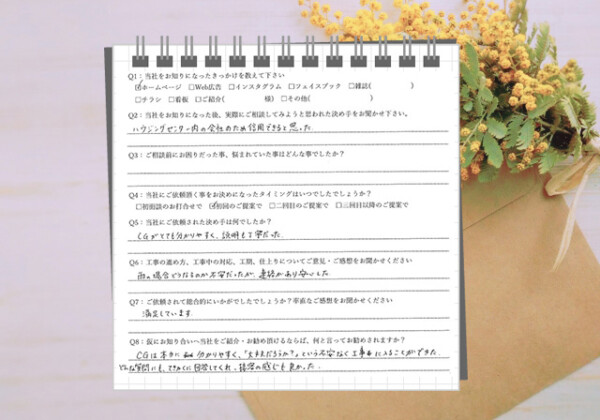 Q1：当社をお知りになったきっかけを教えて下さい
☑ホームページ □Web広告 □インスタグラム □フェイスブック □雑誌( )
□チラシ □看板 □ご紹介( 様) □その他( )
Q2：当社をお知りになった後、実際にご相談してみようと思われた決め手をお聞かせ下さい。
ハウジングセンター内の会社のため信用できると思った.
Q3：ご相談前にお困りだった事、悩まれていた事はどんな事でしたか？
Q4：当社にご依頼頂く事をお決めになったタイミングはいつでしたでしょうか？
□初面談のお打合せで ☑初回のご提案で □二回目のご提案で □三回目以降のご提案で
Q5：当社にご依頼された決め手は何でしたか？
CGがとても分かりやすく、説明も丁寧だった.
Q6：工事の進め方、工事中の対応、工期、仕上りについてご意見・ご感想をお聞かせください
雨の場合どうなるのか不安だったが、連絡があり安心した.
Q7：ご依頼されて総合的にいかがでしたでしょうか？率直なご感想をお聞かせください
満足しています.
Q8：仮にお知り合いへ当社をご紹介・お勧め頂けるならば、何と言ってお勧めされますか？
CGは本当に分かりやすく、「大丈夫だろうか？」という不安なく工事に入ることができた.
どんな質問にも、てきかくに回答してくれ、接客の感じも良かった.